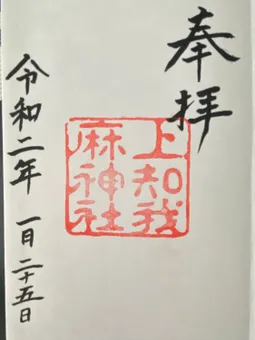 奉拝
上知我
麻神社
令和二年 一月二十五日